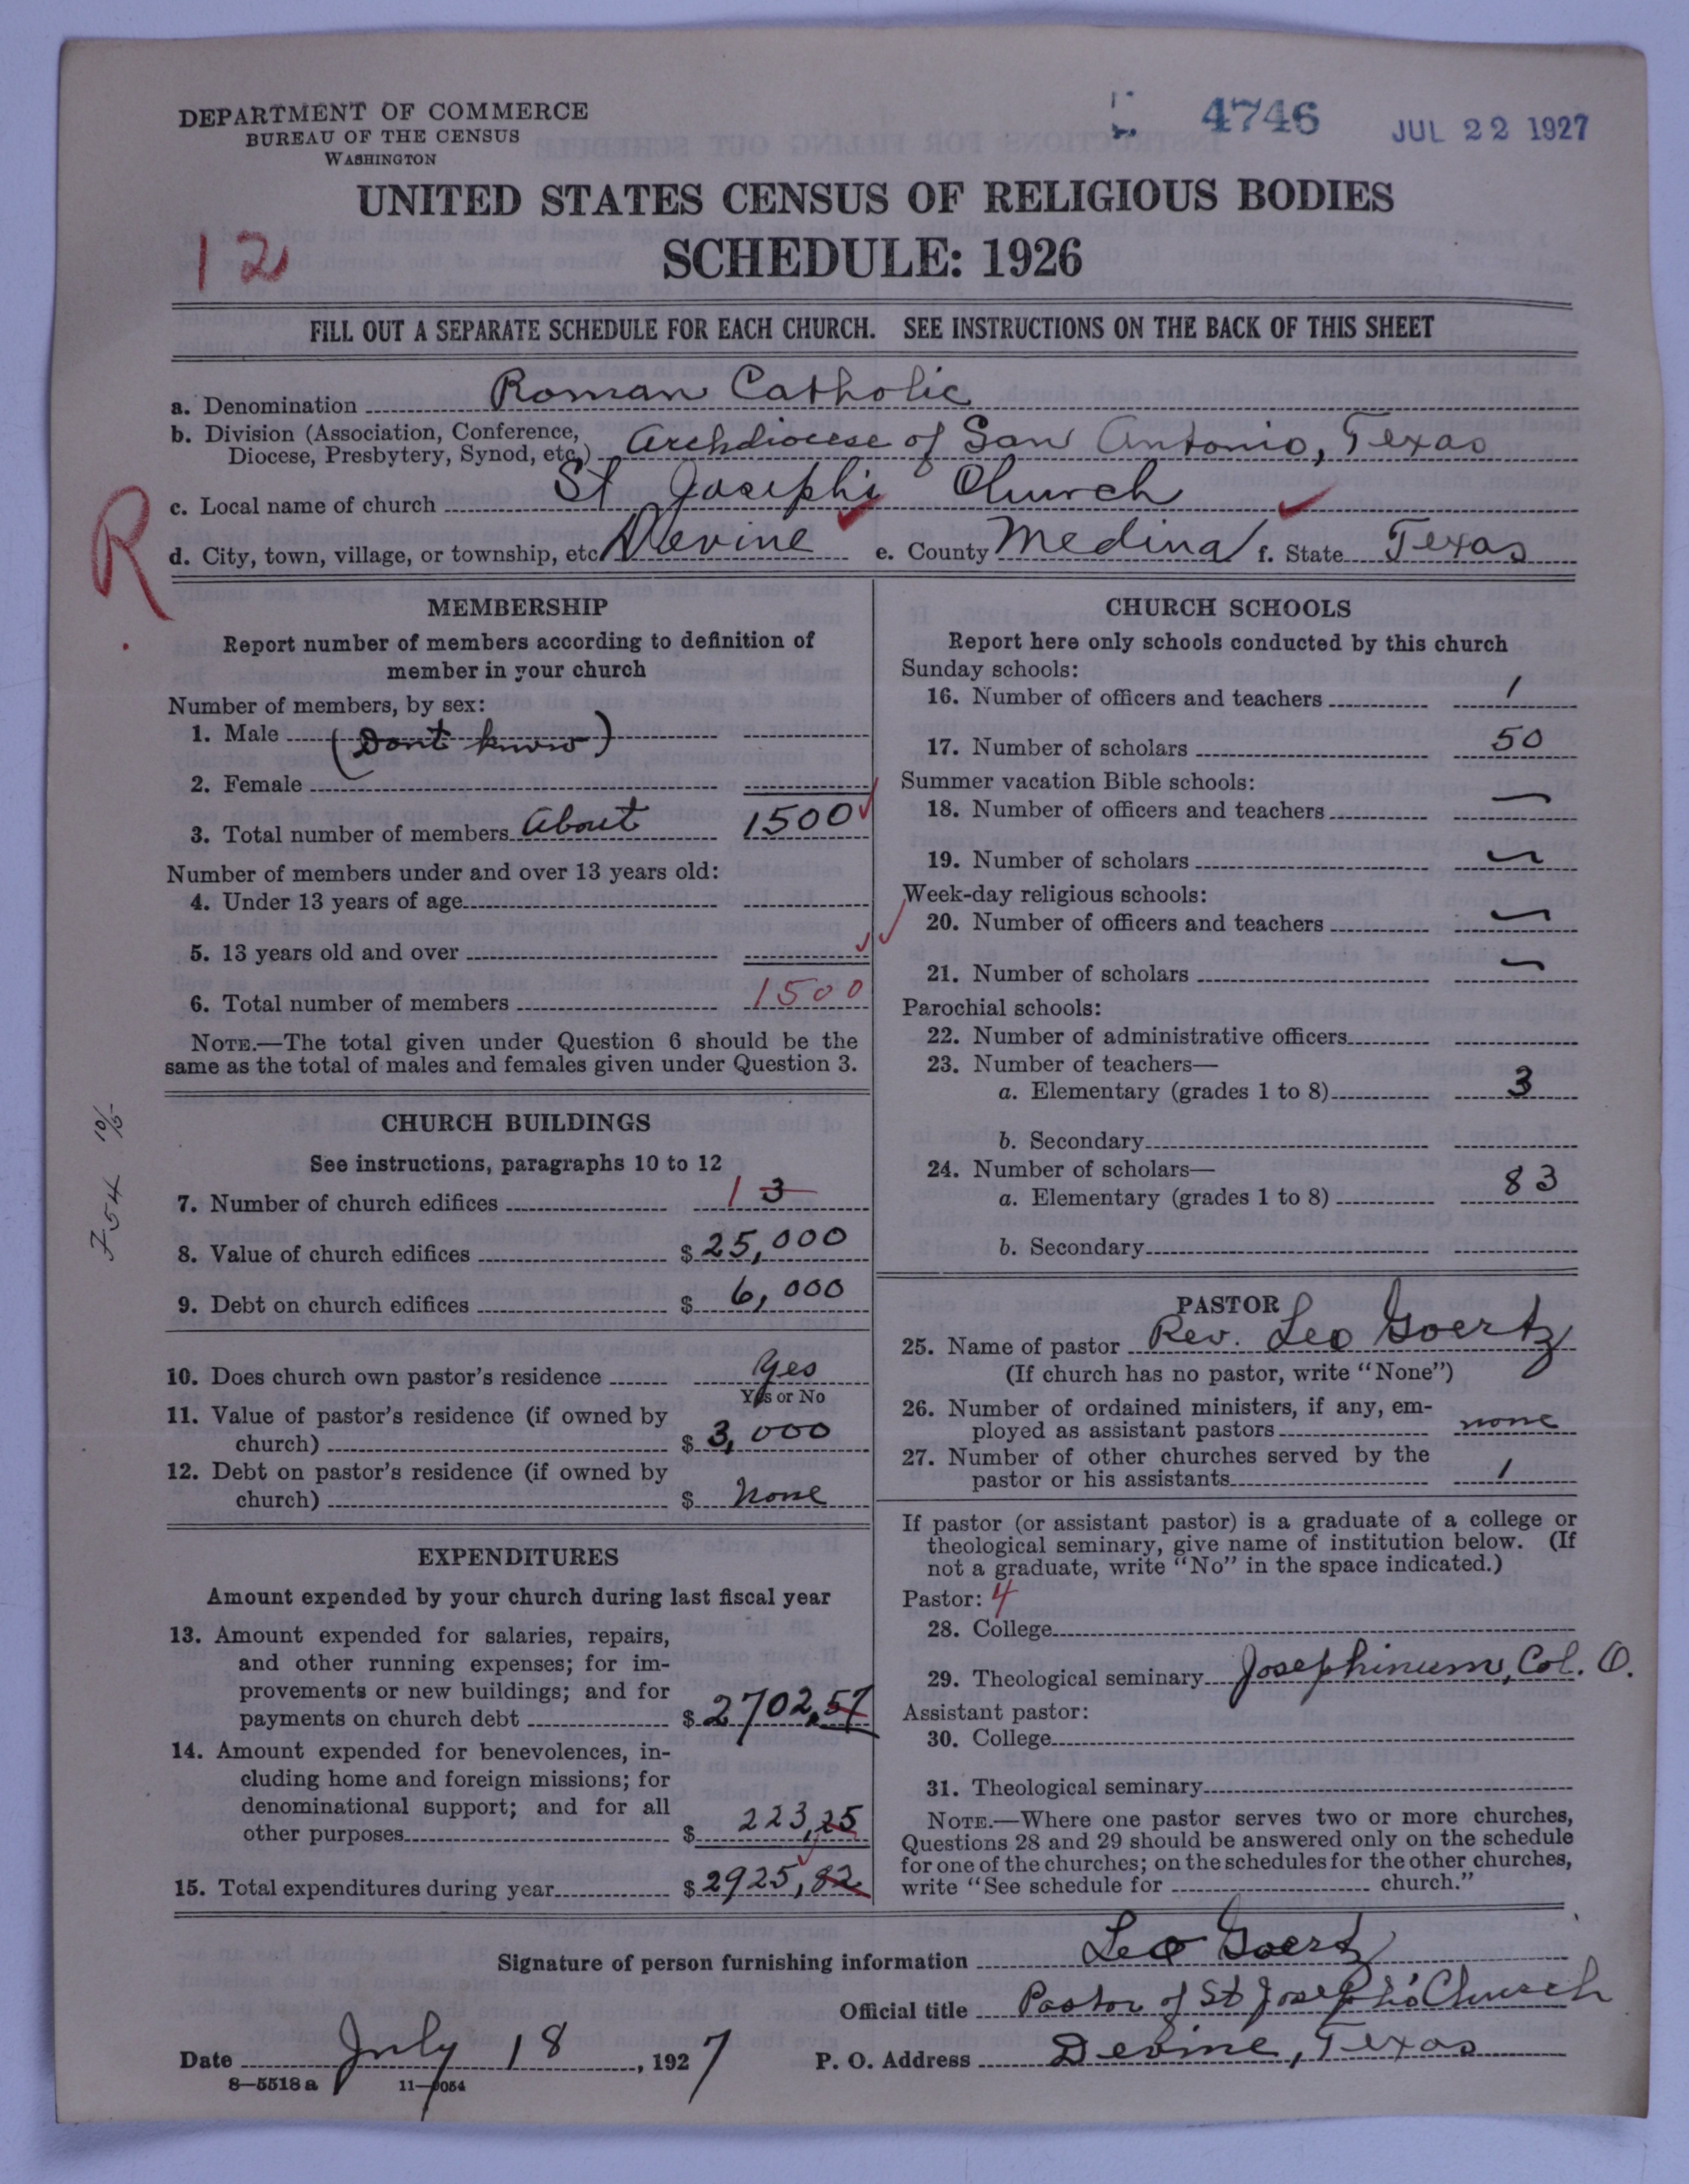 DEPARTMENT OF COMMERCE
BUREAU OF THE CENSUS
WASHINGTON
4746
JUL 22 1927
UNITED STATES CENSUS OF RELIGIOUS BODIES
SCHEDULE: 1926
12
FILL OUT A SEPARATE SCHEDULE FOR EACH CHURCH. SEE INSTRUCTIONS ON THE BACK OF THIS SHEET
a. Denomination Roman Catholic
b. Division (Association, Conference, Diocese, Presbytery, Synod, etc.) Archdiocese of San Antonio, Texas
c. Local name of church St Joseph's Church
R
d. City, town, village, or township, etc Devine e. County Medina f. State Texas
MEMBERSHIP
Report number of members according to definition of
member in your church
Number of members, by sex:
1. Male (Dont know)
2. Female
3. Total number of members About 1500
Number of members under and over 13 years old:
4. Under 13 years of age
5. 13 years old and over
6. Total number of members 1500
NOTE.—The total given under Question 6 should be the
same as the total of males and females given under Question 3.
CHURCH BUILDINGS
See instructions, paragraphs 10 to 12
7. Number of church edifices 1 3
8. Value of church edifices $ 25,000
9. Debt on church edifices $ 6,000
10. Does church own pastor's residence Yes
Yes or No
11. Value of pastor's residence (if owned by
church) $ 3,000
12. Debt on pastor's residence (if owned by
church) $ None
754 10/5
EXPENDITURES
Amount expended by your church during last fiscal year
13. Amount expended for salaries, repairs,
and other running expenses; for im-
provements or new buildings; and for
payments on church debt $ 2702,57
14. Amount expended for benevolences, in-
cluding home and foreign missions; for
denominational support; and for all
other purposes $ 223,25
15. Total expenditures during year $ 2925,82
CHURCH SCHOOLS
Report here only schools conducted by this church
Sunday schools:
16. Number of officers and teachers 1
17. Number of scholars 50
Summer vacation Bible schools:
18. Number of officers and teachers —
19. Number of scholars —
Week-day religious schools:
20. Number of officers and teachers —
21. Number of scholars —
Parochial schools:
22. Number of administrative officers
23. Number of teachers—
a. Elementary (grades 1 to 8) 3
b. Secondary
24. Number of scholars—
a. Elementary (grades 1 to 8) 83
b. Secondary
PASTOR
25. Name of pastor Rev. Leo Goertz
(If church has no pastor, write "None")
26. Number of ordained ministers, if any, em-
ployed as assistant pastors none
27. Number of other churches served by the
pastor or his assistants 1
If pastor (or assistant pastor) is a graduate of a college or
theological seminary, give name of institution below. (If
not a graduate, write "No" in the space indicated.)
Pastor: 4
28. College
29. Theological seminary Josephinum, Col. O.
Assistant pastor:
30. College
31. Theological seminary
NOTE.—Where one pastor serves two or more churches,
Questions 28 and 29 should be answered only on the schedule
for one of the churches; on the schedules for the other churches,
write "See schedule for church."
Signature of person furnishing information Leo Goertz
Official title Pastor of St Joseph's Church
Date July 18, 1927 P. O. Address Devine, Texas
8—5518 a 11—9054